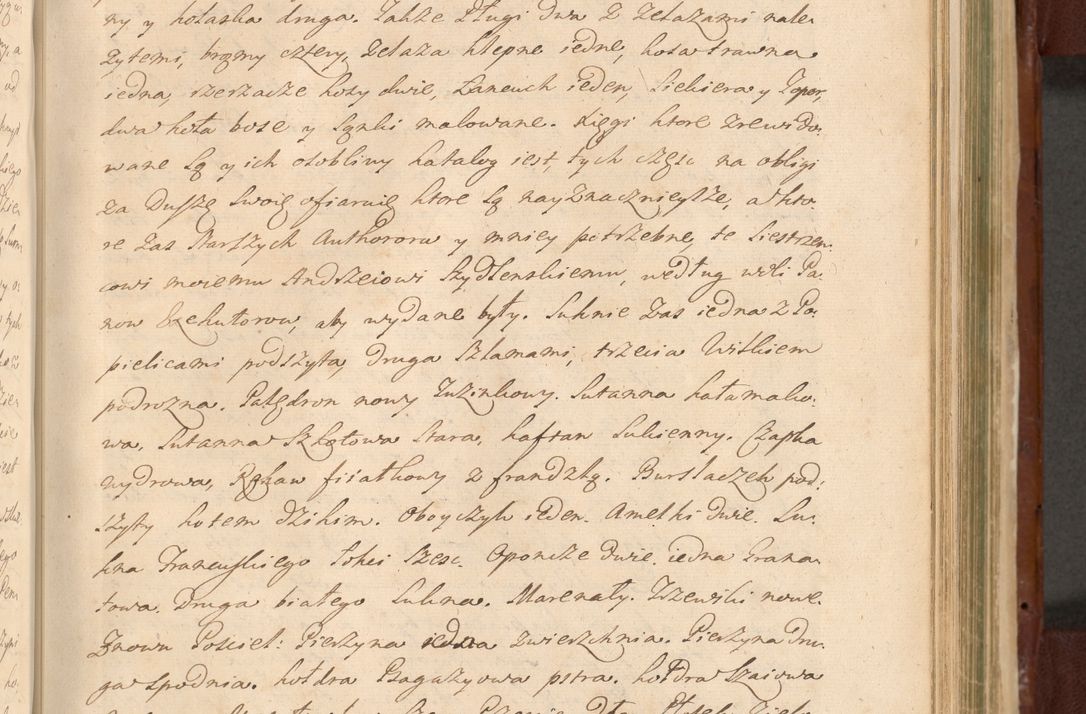 ny y kolaska druga. Także Pługi dwa z zelazami nale-
zytemi, brony cztery, zelaza klepne iedne, kosa trawna
iedna, rzerzacze kosy dwie, Lancuch ieden, Siekiera y Topor,
dwa koła bose y Sąnki malowane. Xięgi ktore zrewido-
wane są y ich osobliwy katalog iest, tych częsc na obligi
za Duszę swoię ofiaruię ktore są nayznacznieysze, a kto-
re zas starszych Authorow y mniey potrzebne, te Siestrzen-
cowi moiemu Andrzeiowi Szydłenskiemu, według woli Pa-
now Exekutorow, aby wydane były. Suknie zas iedna z Po-
pielicami podszyta, druga Szlamami, trzecia Wilkiem
podrozna. Palędron nowy Tuzinkowy. Sutanna kałamako-
wa, Sutanna Szkotowa stara, kaftan Sukienny. Czapka
wydrowa, Rękaw fiiałkowy z frandzlą. Burslaczek pod-
szyty kotem dzikim. Oboyczyk ieden. Ametki dwie. Su-
kna Francuskiego łokci szesc. Oponcze dwie, iedna Grana-
towa, druga białego Sukna. Marenały. Trzewiki nowe.
Znowu Posciel: Pierzyna iedna zwierzchnia. Pierzyna dru-
ga spodnia. kołdra Bagazyowa pstra. kołdra Szaiowa